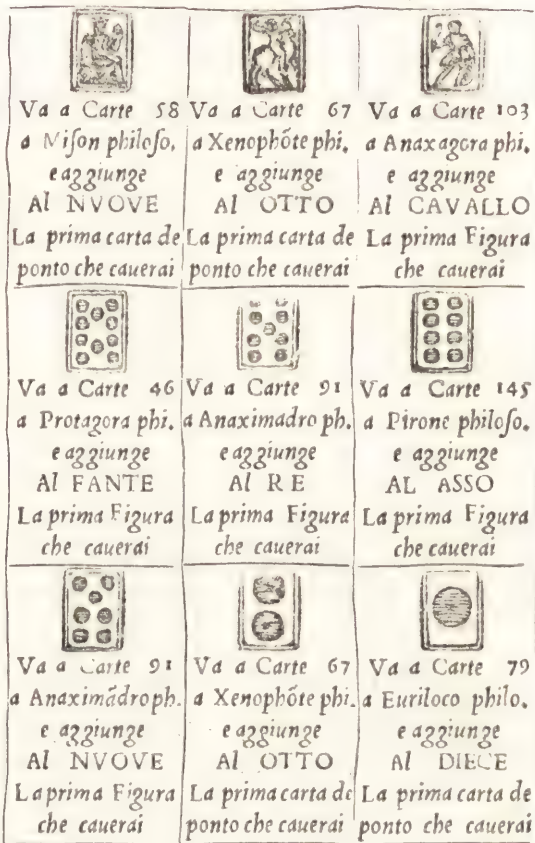 Va a Carte 58
a Miſon philoſo.
e aggiunge
Al NVOVE
La prima carta de
ponto che cauerai
Va a Carte 67
a Xenophõte phi.
e aggiunge
Al OTTO
La prima carta de
ponto che cauerai
Va a Carte 103
a Anaxagora phi.
e aggiunge
Al CAVALLO
La prima Figura
che cauerai
Va a Carte 46
a Protagora phi.
e aggiunge
Al FANTE
La prima Figura
che cauerai
Va a Carte 91
a Anaximadro ph.
e aggiunge
Al RE
La prima Figura
che cauerai
Va a Carte 145
a Pirone philoſo.
e aggiunge
AL ASSO
La prima Figura
che cauerai
Va a Carte 91
a Anaximãdro ph.
e aggiunge
Al NVOVE
La prima Figura
che cauerai
Va a Carte 67
a Xenophõte phi.
e aggiunge
Al OTTO
La prima carta de
ponto che cauerai
Va a Carte 79
a Euriloco philo.
e aggiunge
Al DIECE
La prima carta de
ponto che cauerai